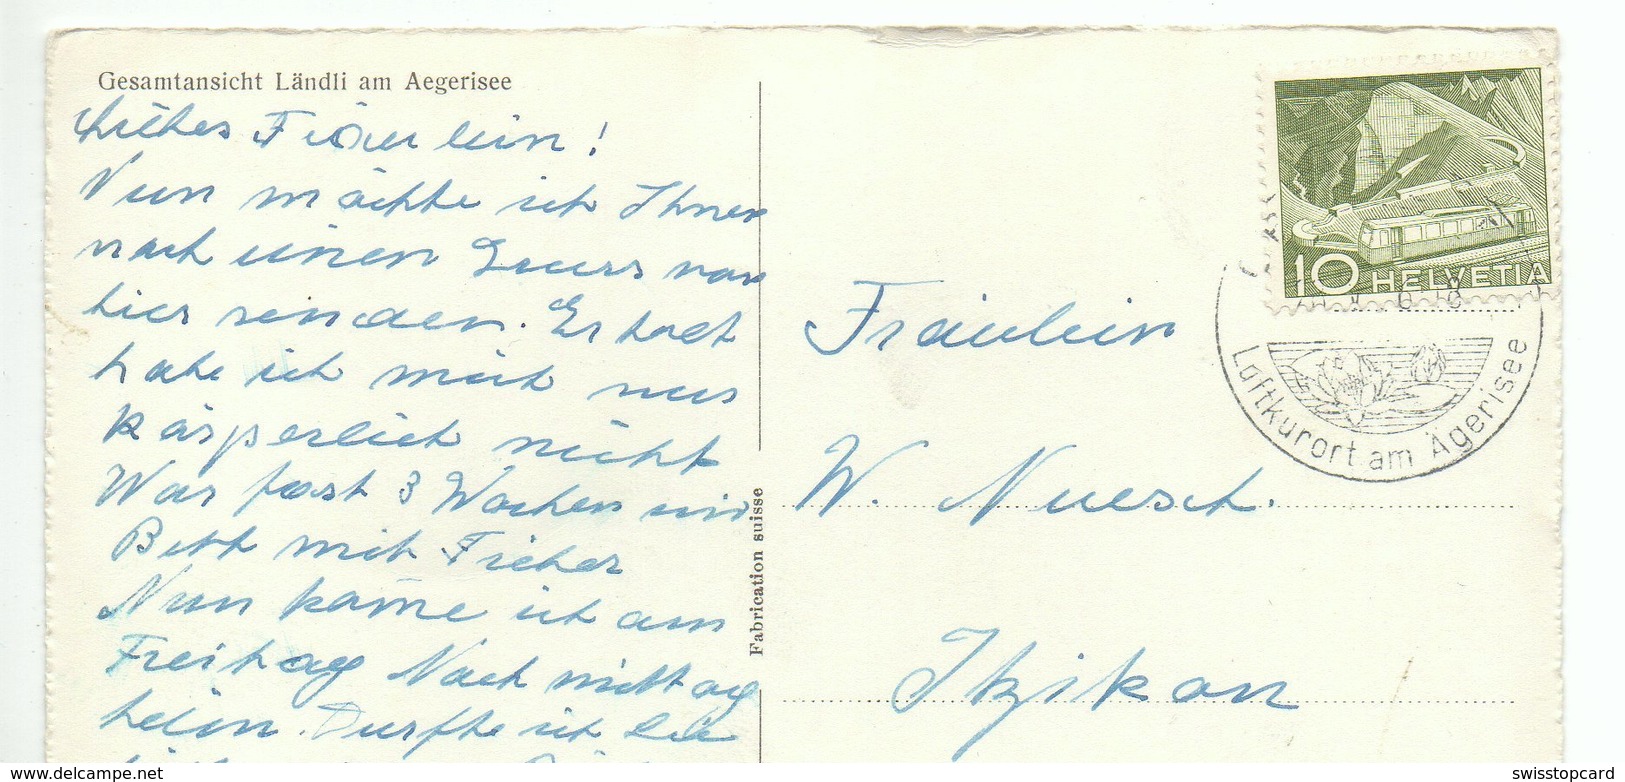 Gesamtansicht Ländli am Aegerisee
Liebes Fräulein!
Nun möchte ich Ihnen
noch einen Gruss von
hier senden. Erholt
habe ich mich nur
körperlich nicht
War fast 3 Wochen im
Bett mit Fieber
Nun käme ich am
Freitag Nachmittag
heim. Dürfte ich Sie
Fabrication suisse
10 HELVETIA
Luftkurort am Ägerisee
Fräulein
W. Nuesch.
Itzikon
swisstopcard
www.delcampe.net